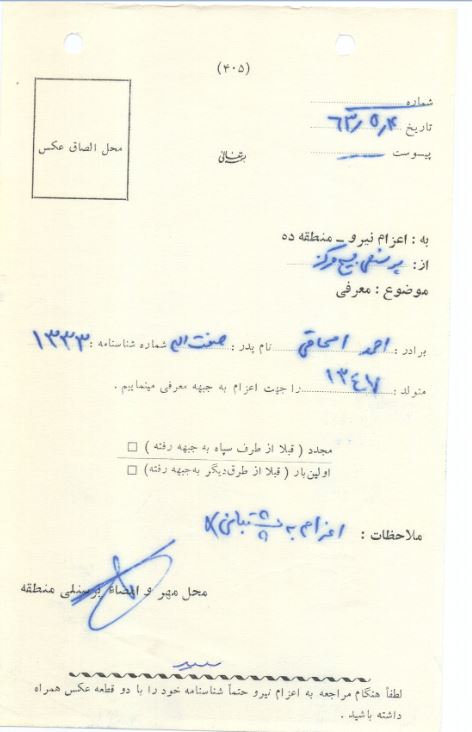 (۴۰۵)
شماره
تاریخ ۶۳٫۵٫۴
پیوست
بسمه‌تعالی
محل الصاق عکس
به : اعزام نیرو ــ منطقه ده
از : پرسنلی بسیج مرکز
موضوع : معرفی
برادر : احمد اسحاقی نام پدر : صفت‌اله شماره شناسنامه : ۱۳۳۳
متولد : ۱۳۴۷ را جهت اعزام به جبهه معرفی مینماییم .
مجدد ( قبلا از طرف سپاه به جبهه رفته ) □
اولین بار ( قبلا از طرق دیگر به جبهه رفته) □
ملاحظات : اعزام به
محل مهر و امضاء پرسنلی منطقه
لطفاً هنگام مراجعه به اعزام نیرو حتماً شناسنامه خود را با دو قطعه عکس همراه
داشته باشید .